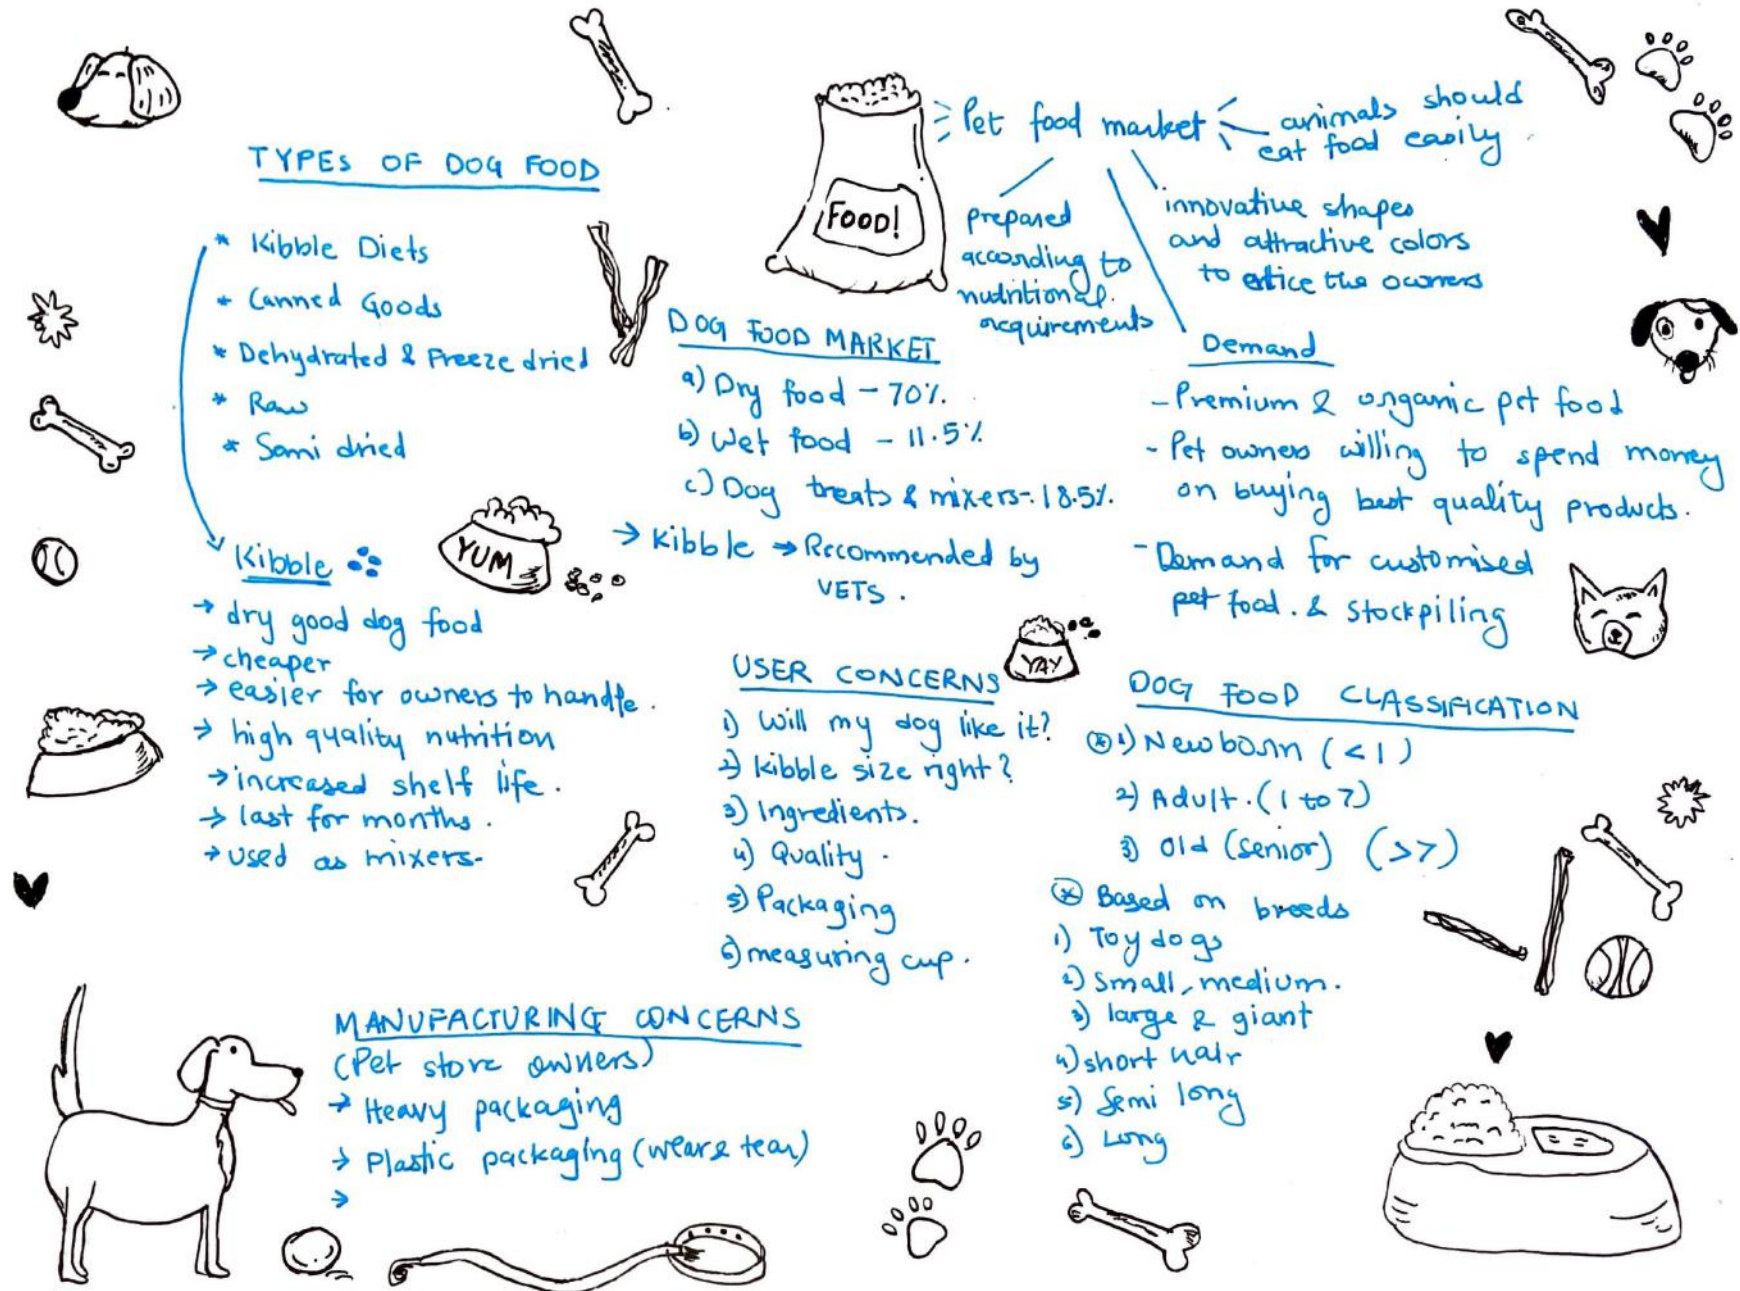 TYPES OF DOG FOOD
* Kibble Diets
* Canned Goods
* Dehydrated & Freeze dried
* Raw
* Semi dried
Kibble
→ dry good dog food
→ cheaper
→ easier for owners to handle.
→ high quality nutrition
→ increased shelf life.
→ last for months.
→ used as mixers-
YUM
FOOD!
Pet food market
animals should
eat food easily
prepared
according to
nutritional
requirements
innovative shapes
and attractive colors
to entice the owners
DOG FOOD MARKET
a) Dry food - 70%.
b) Wet food - 11.5%
c) Dog treats & mixers-18.5%.
→ Kibble → Recommended by
VETS.
Demand
- Premium & organic pet food
- Pet owners willing to spend money
on buying best quality products.
- Demand for customised
pet food. & stockpiling
YAY
USER CONCERNS
1) Will my dog like it?
2) kibble size right?
3) Ingredients.
4) Quality.
5) Packaging
6) measuring cup.
DOG FOOD CLASSIFICATION
* 1) Newborn (<1)
2) Adult. (1 to 7)
3) Old (senior) (>7)
* Based on breeds
1) Toy dogs
2) Small, medium.
3) large & giant
4) short hair
5) Semi long
6) Long
MANUFACTURING CONCERNS
(Pet store owners)
→ Heavy packaging
→ Plastic packaging (wear & tear)
→